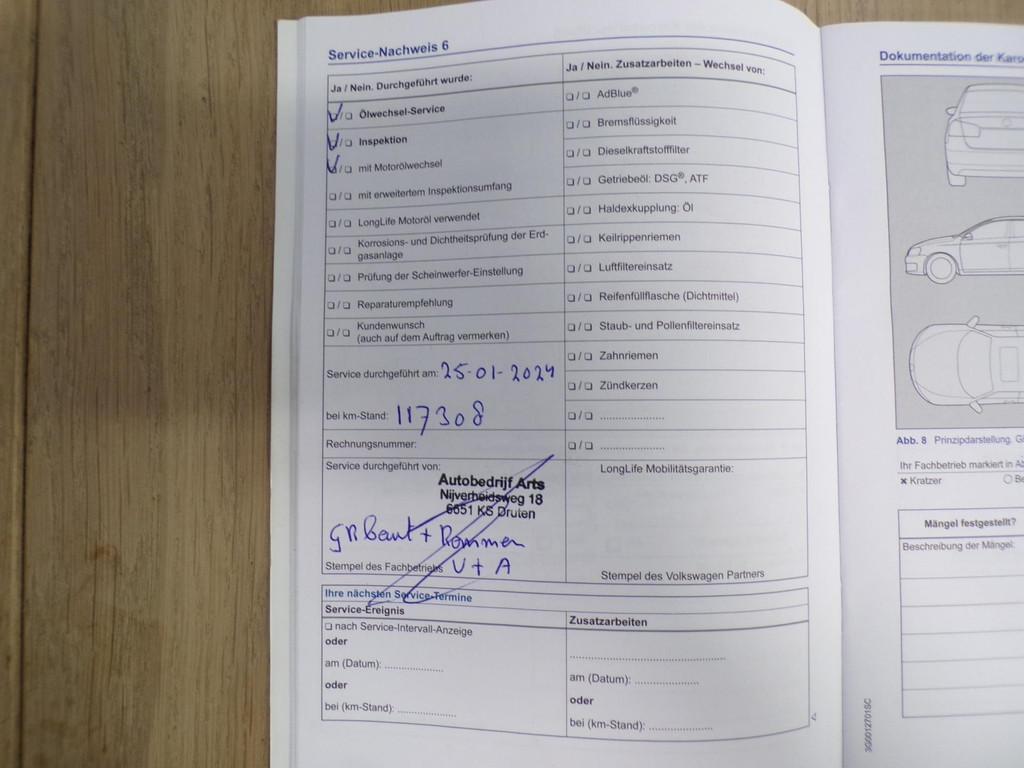 Service-Nachweis 6
Ja / Nein. Durchgeführt wurde:
Ölwechsel-Service
Inspektion
mit Motorölwechsel
mit erweitertem Inspektionsumfang
LongLife Motoröl verwendet
Korrosions- und Dichtheitsprüfung der Erd-
gasanlage
Prüfung der Scheinwerfer-Einstellung
Reparaturempfehlung
Kundenwunsch
(auch auf dem Auftrag vermerken)
Service durchgeführt am: 25-01-2024
bei km-Stand: 117308
Rechnungsnummer:
Service durchgeführt von:
Autobedrijf Arts
Nijverheidsweg 18
6651 KS Druten
+ Remmen
Stempel des Fachbetriebs V + A
Ja / Nein. Zusatzarbeiten – Wechsel von:
AdBlue®
Bremsflüssigkeit
Dieselkraftstofffilter
Getriebeöl: DSG®, ATF
Haldexkupplung: Öl
Keilrippenriemen
Luftfiltereinsatz
Reifenfüllflasche (Dichtmittel)
Staub- und Pollenfiltereinsatz
Zahnriemen
Zündkerzen
LongLife Mobilitätsgarantie:
Stempel des Volkswagen Partners
Ihre nächsten Service-Termine
Service-Ereignis
nach Service-Intervall-Anzeige
oder
am (Datum): ....................
oder
bei (km-Stand): ....................
Zusatzarbeiten
am (Datum): ....................
oder
bei (km-Stand): ....................
Dokumentation der
Abb. 8 Prinzipdarstellung.
Ihr Fachbetrieb markiert in
× Kratzer
Mängel festgestellt?
Beschreibung der Mängel:
3G0012701SC